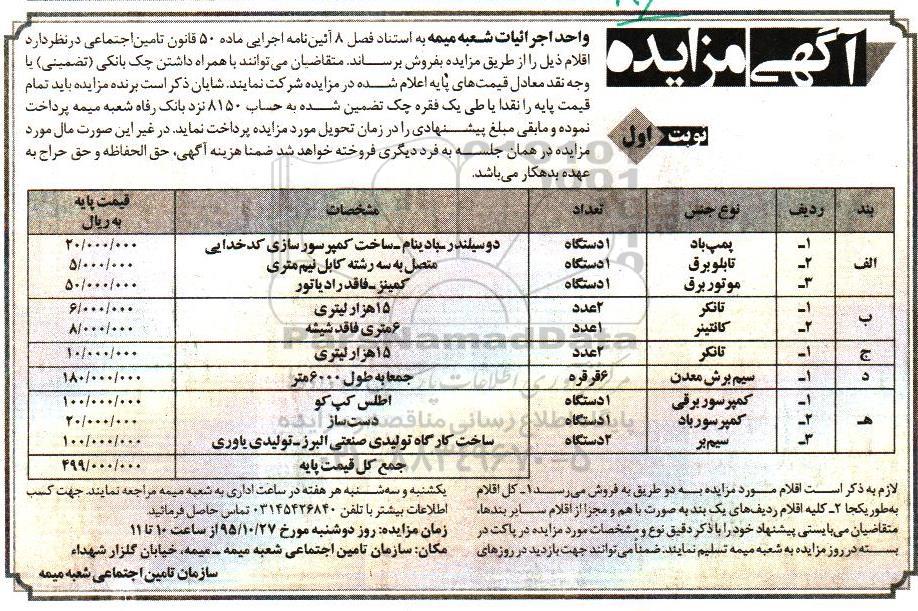 آگهی مزایده
نوبت اول
واحد اجرائیات شعبه میمه به استناد فصل ۸ آئین‌نامه اجرایی ماده ۵۰ قانون تامین اجتماعی در نظر دارد
اقلام ذیل را از طریق مزایده بفروش برساند. متقاضیان می‌توانند با همراه داشتن چک بانکی (تضمینی) یا
وجه نقد معادل قیمت‌های پایه اعلام شده در مزایده شرکت نمایند. شایان ذکر است برنده مزایده باید تمام
قیمت پایه را نقدا یا طی یک فقره چک تضمین شده به حساب ۸۱۵۰ نزد بانک رفاه شعبه میمه پرداخت
نموده و مابقی مبلغ پیشنهادی را در زمان تحویل مورد مزایده پرداخت نماید. در غیر این صورت مال مورد
مزایده در همان جلسه به فرد دیگری فروخته خواهد شد ضمنا هزینه آگهی، حق الحفاظه و حق حراج به
عهده بدهکار می‌باشد.
بند ردیف نوع جنس تعداد مشخصات قیمت پایه به ریال
الف ۱ـ پمپ باد ۱دستگاه دوسیلندر ـ بادینام ـ ساخت کمپرسورسازی کدخدایی ۲۰/۰۰۰/۰۰۰
۲ـ تابلو برق ۱دستگاه متصل به سه رشته کابل نیم متری ۵/۰۰۰/۰۰۰
۳ـ موتور برق ۱دستگاه کمینز ـ فاقد رادیاتور ۵۰/۰۰۰/۰۰۰
ب ۱ـ تانکر ۲عدد ۱۵هزار لیتری ۶/۰۰۰/۰۰۰
۲ـ کانتینر ۱عدد ۶متری فاقد شیشه ۸/۰۰۰/۰۰۰
ج ۱ـ تانکر ۲عدد ۱۵هزار لیتری ۱۰/۰۰۰/۰۰۰
د ۱ـ سیم برش معدن ۶قرقره جمعا به طول ۶۰۰۰متر ۱۸۰/۰۰۰/۰۰۰
هـ ۱ـ کمپرسور برقی ۱دستگاه اطلس کپ کو ۱۰۰/۰۰۰/۰۰۰
۲ـ کمپرسور باد ۱دستگاه دست ساز ۲۰/۰۰۰/۰۰۰
۳ـ سیم‌بر ۲دستگاه ساخت کارگاه تولیدی صنعتی البرز ـ تولیدی یاوری ۱۰۰/۰۰۰/۰۰۰
جمع کل قیمت پایه ۴۹۹/۰۰۰/۰۰۰
لازم به ذکر است اقلام مورد مزایده به دو طریق به فروش می‌رسد ۱ـ کل اقلام
به‌طور یکجا ۲ـ کلیه اقلام ردیف‌های یک بند به صورت با هم و مجزا از اقلام سایر بندها،
متقاضیان می‌بایستی پیشنهاد خود را با ذکر دقیق نوع و مشخصات مورد مزایده در پاکت در
بسته در روز مزایده به شعبه میمه تسلیم نمایند. ضمنا می‌توانند جهت بازدید در روزهای
یکشنبه و سه‌شنبه هر هفته در ساعت اداری به شعبه میمه مراجعه نمایند. جهت کسب
اطلاعات بیشتر با تلفن ۰۳۱۴۵۴۲۶۸۴۰ تماس حاصل فرمائید.
زمان مزایده: روز دوشنبه مورخ ۹۵/۱۰/۲۷ از ساعت ۱۰ تا ۱۱
مکان: سازمان تامین اجتماعی شعبه میمه ـ میمه، خیابان گلزار شهداء
سازمان تامین اجتماعی شعبه میمه
ParsNamadData
پایگاه اطلاع رسانی مناقصه مزایده